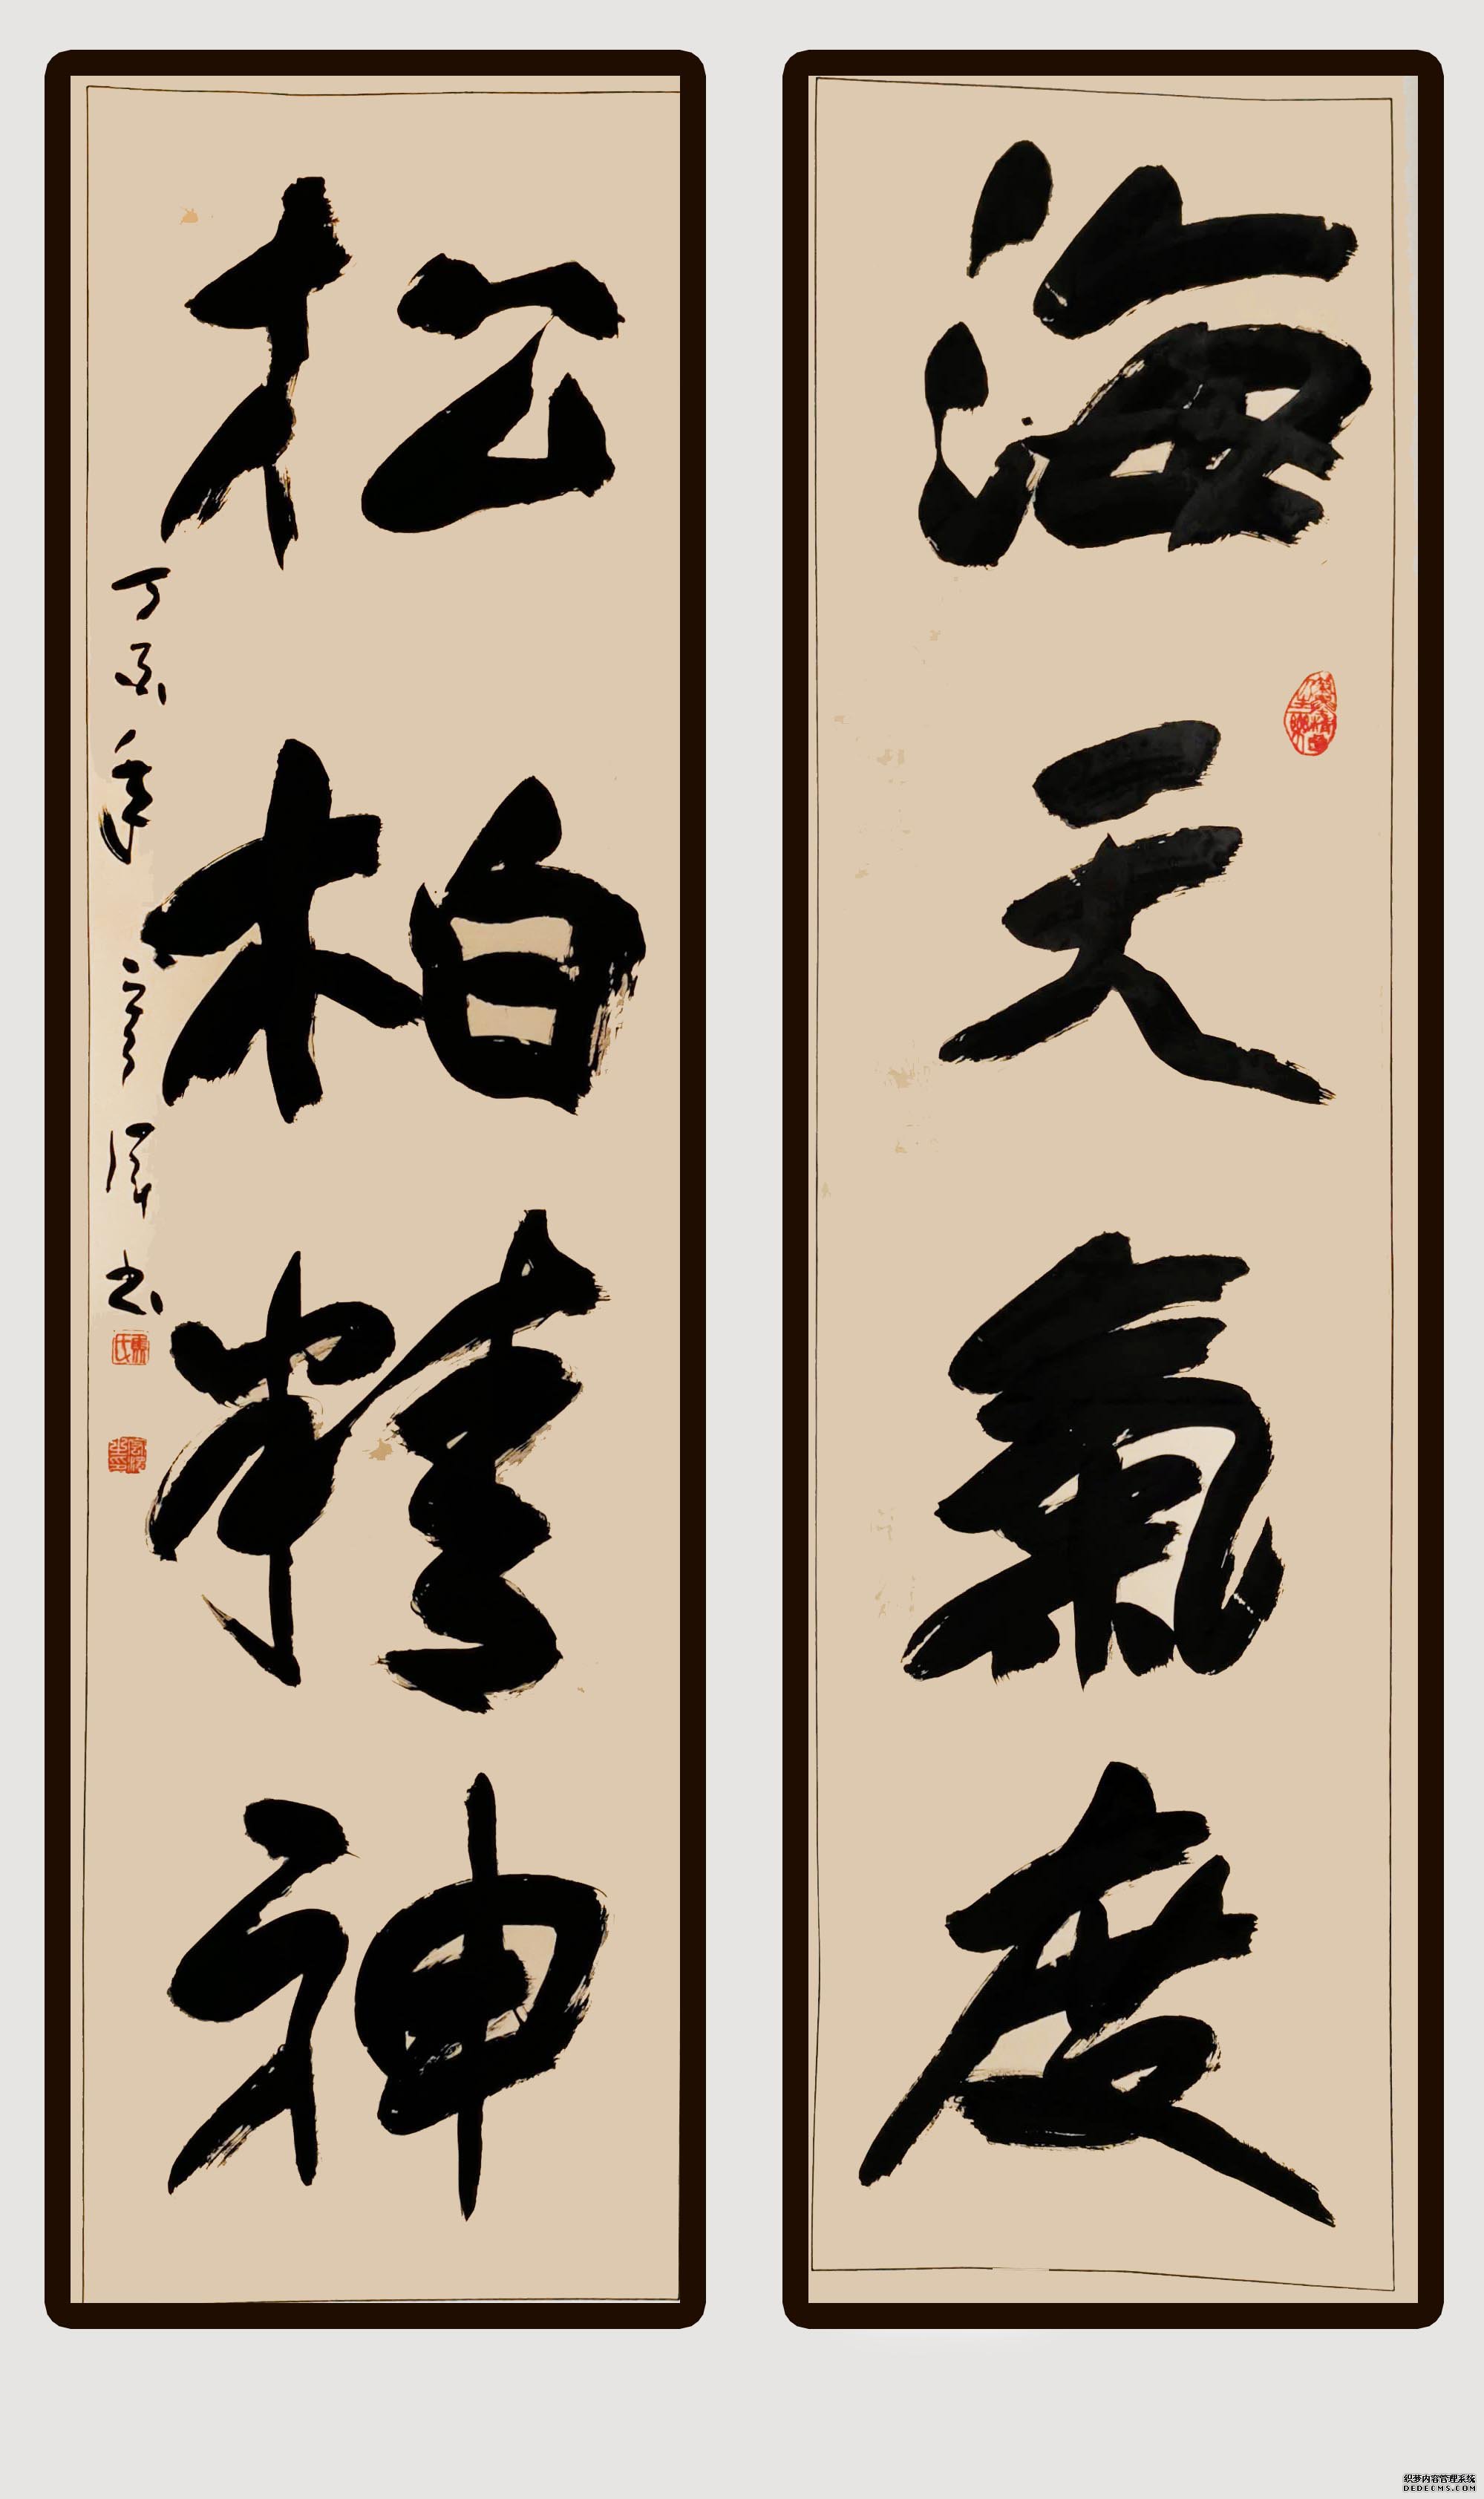 海天气度
松柏精神
丁酉年
书
织梦内容管理系统
DEDECMS.COM